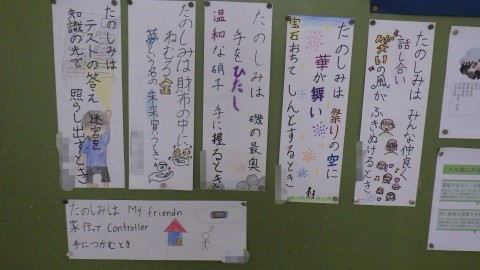 たのしみは みんな仲良く
話し合い
笑いの風が ふきぬけるとき
たのしみは 祭りの空に
華が舞い
宝石おちて しんとするとき
たのしみは 磯の最奥
手をひたし
温和な硝子 手に握るとき
たのしみは財布の中に
ねむる金
夢という名の 未来買うとき
たのしみは
テストの答え 迷宮を
知識の光で 照らし出すとき
たのしみは My friendの
家行って Controller
手につかむとき